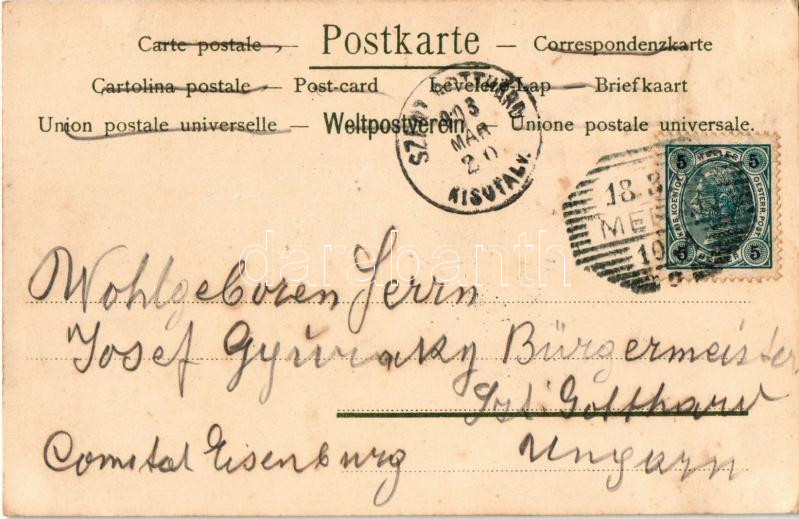 Carte postale — Postkarte — Correspondenzkarte
Cartolina postale — Post-card — Levelező-Lap — Briefkaart
Union postale universelle — Weltpostverein. — Unione postale universale.
SZENT GOTTHÁRD
903
MAR
20
KISUFALU.
18.3
MER
5 HELLER 5
KAIS. KOENIGL. OESTERR. POST
5 HELLER 5
darabanth
Wohlgeboren Herrn
Josef Bürgermeister
Szt Gotthard
Comitat Eisenburg Ungarn